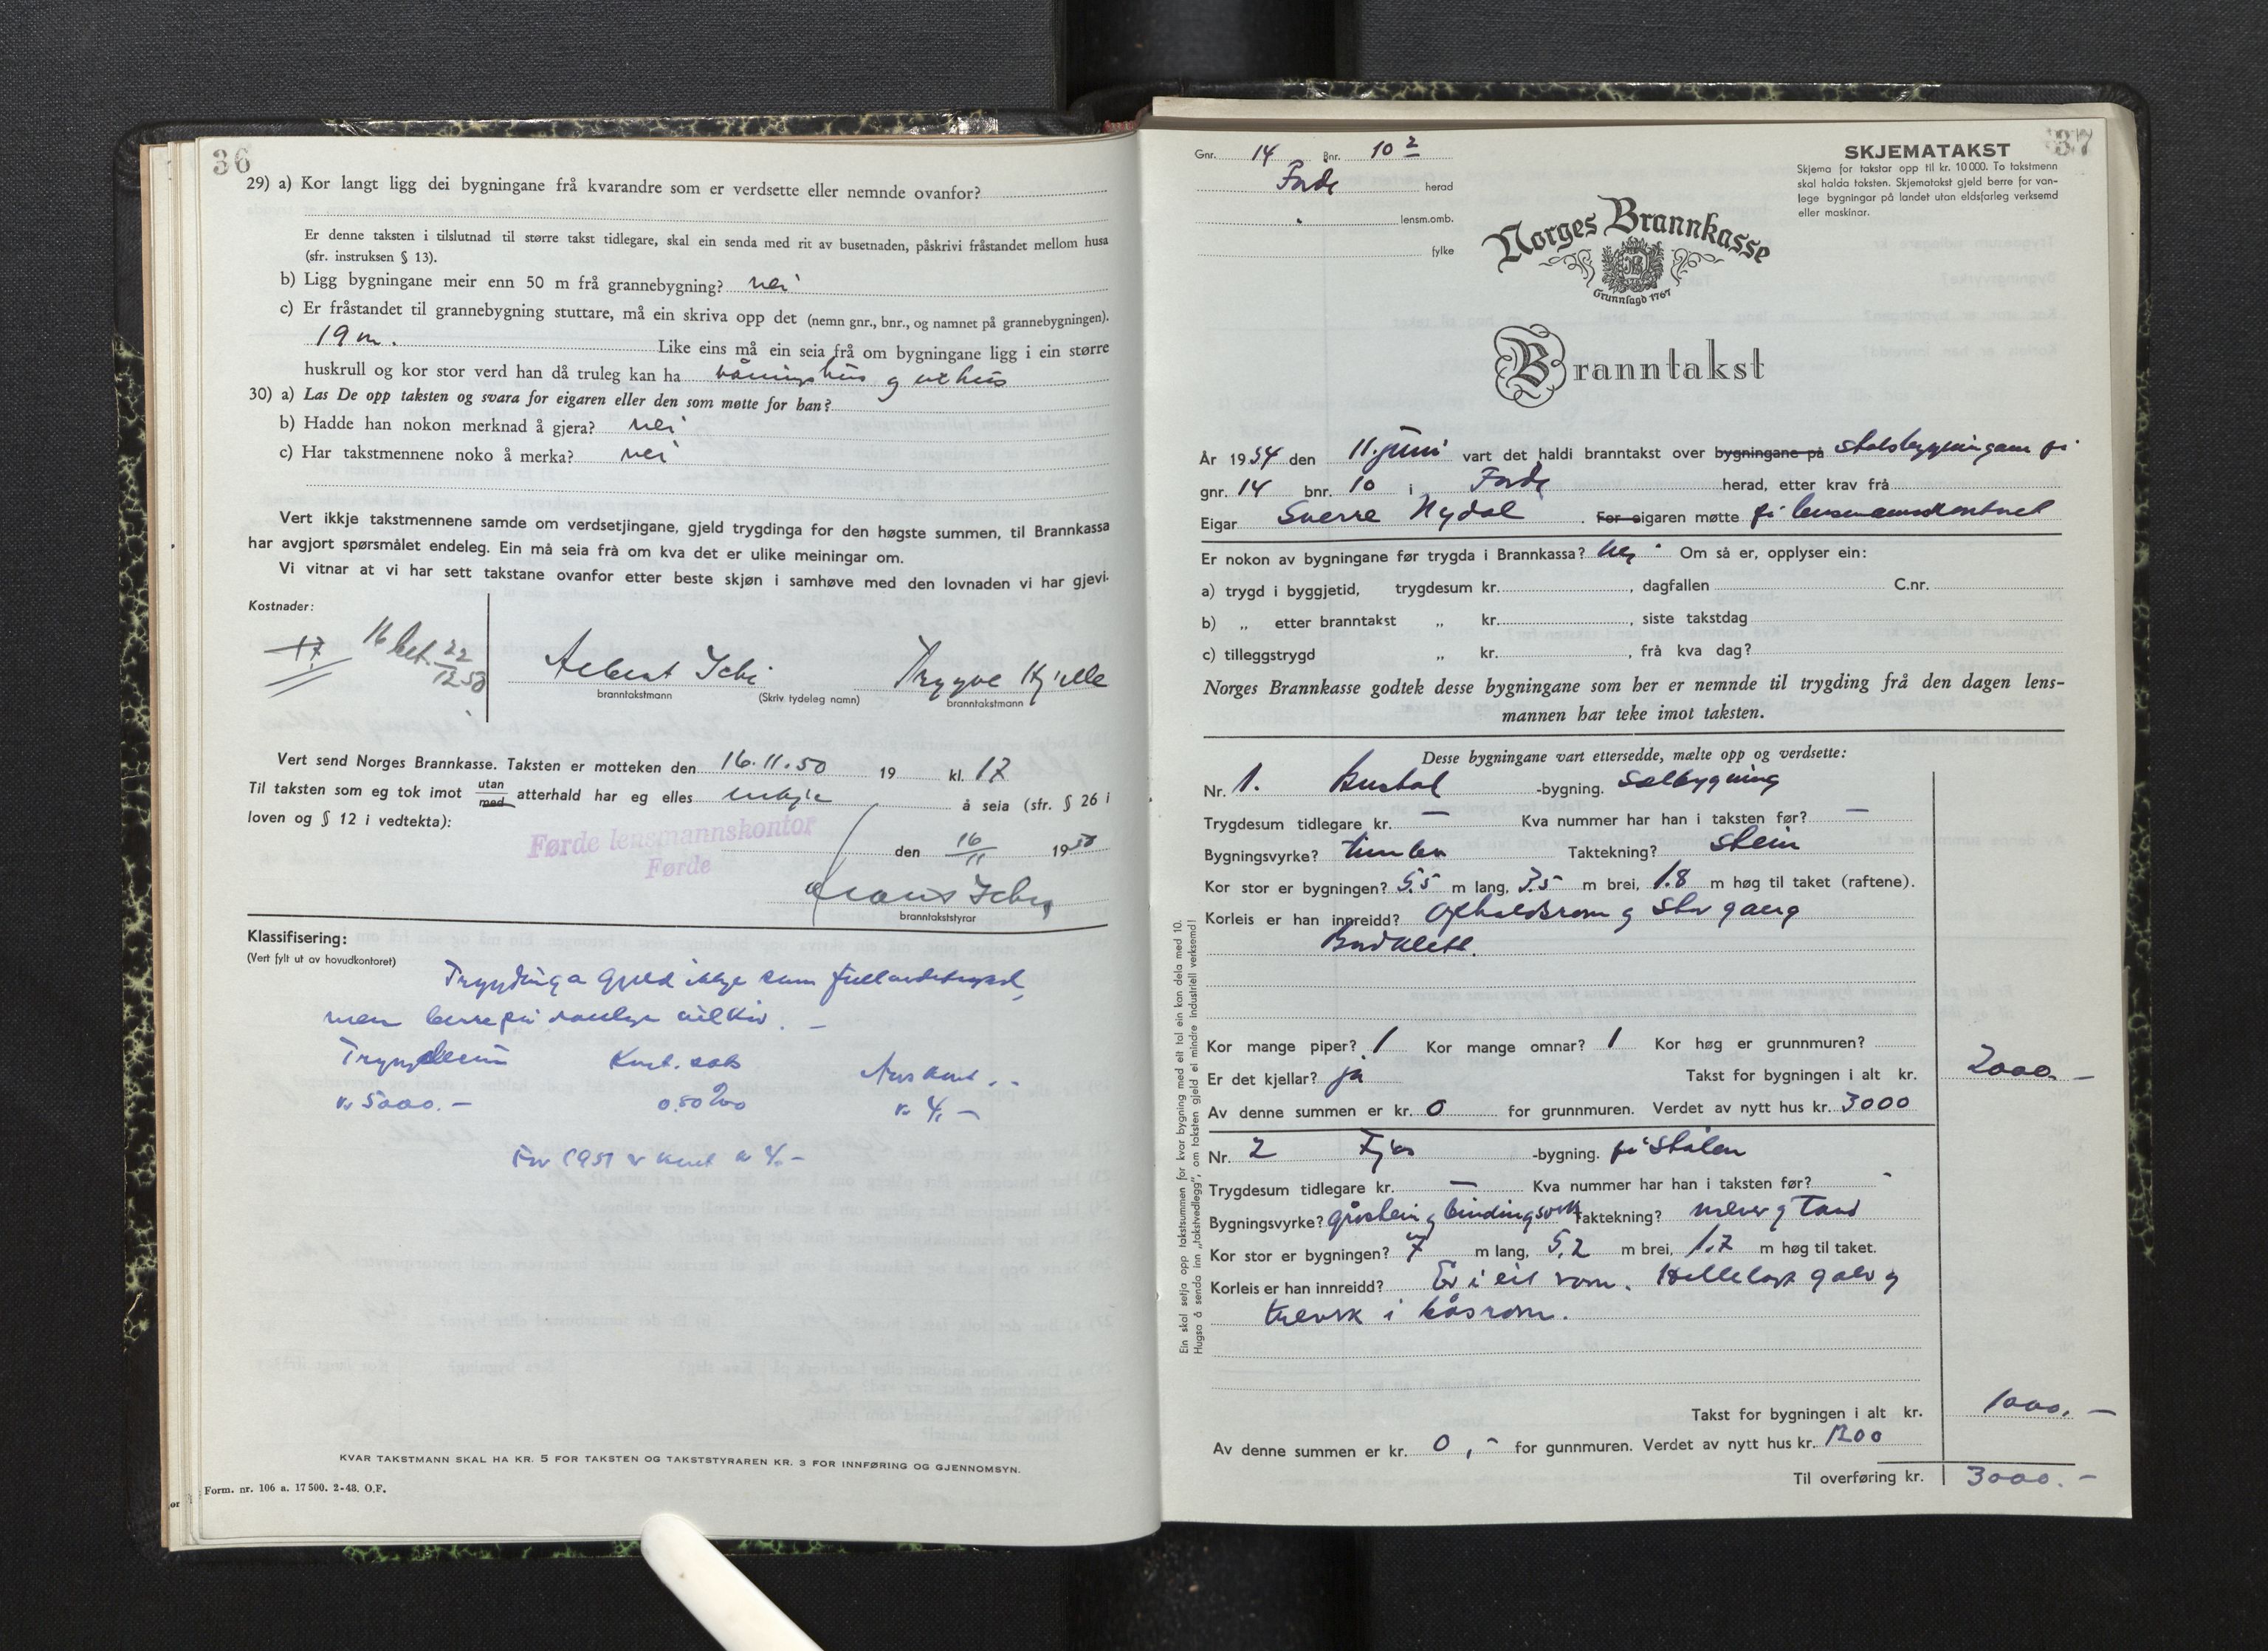 36
29) a) Kor langt ligg dei bygningane frå kvarandre som er verdsette eller nemnde ovanfor?
Er denne taksten i tilslutnad til større takst tidlegare, skal ein senda med rit av busetnaden, påskrivi fråstandet mellom husa
(sfr. instruksen § 13).
b) Ligg bygningane meir enn 50 m frå grannebygning? nei
c) Er fråstandet til grannebygning stuttare, må ein skriva opp det (nemn gnr., bnr., og namnet på grannebygningen).
19 m. Like eins må ein seia frå om bygningane ligg i ein større
huskrull og kor stor verd han då truleg kan ha våningshus og uthus
30) a) Las De opp taksten og svara for eigaren eller den som møtte for han?
b) Hadde han nokon merknad å gjera? nei
c) Har takstmennene noko å merka? nei
Vert ikkje takstmennene samde om verdsetjingane, gjeld trygdinga for den høgste summen, til Brannkassa
har avgjort spørsmålet endeleg. Ein må seia frå om kva det er ulike meiningar om.
Vi vitnar at vi har sett takstane ovanfor etter beste skjøn i samhøve med den lovnaden vi har gjevi.
Kostnader:
17 16 bet. 22/12 50
Trygve
branntakstmann (Skriv tydeleg namn) branntakstmann
Vert send Norges Brannkasse. Taksten er motteken den 16.11.50 19 kl. 17
Til taksten som eg tok imot utan/med atterhald har eg elles inkje å seia (sfr. § 26 i
loven og § 12 i vedtekta):
Førde lensmannskontor
Førde
den 16/11 1950
branntakststyrar
Klassifisering:
(Vert fylt ut av hovudkontoret)
Trygdinga gjeld ikkje som fullverdetrygd,
men berre på vanlege vilkår. –
Trygdesum Kont. sats Årskont.
kr 5000.– 0.80 ‰ kr 4.–
For 1951 er kont kr 4.–
KVAR TAKSTMANN SKAL HA KR. 5 FOR TAKSTEN OG TAKSTSTYRAREN KR. 3 FOR INNFØRING OG GJENNOMSYN.
Form. nr. 106 a. 17500. 2-48. O.F.
37
Gnr. 14 Bnr. 10 2
Førde herad
lensm.omb.
fylke
SKJEMATAKST
Skjema for takstar opp til kr. 10 000. To takstmenn
skal halda taksten. Skjematakst gjeld berre for van-
lege bygningar på landet utan eldsfarleg verksemd
eller maskinar.
Norges Brannkasse
Grunnlagd 1767
Branntakst
År 1954 den 11. juni vart det haldi branntakst over bygningane på stølsbygningane på
gnr. 14 bnr. 10 i Førde herad, etter krav frå
Eigar Sverre Nydal. For eigaren møtte på lensmannskontoret
Er nokon av bygningane før trygda i Brannkassa? Nei. Om så er, opplyser ein:
a) trygd i byggjetid, trygdesum kr. , dagfallen C.nr.
b) „ etter branntakst „ kr. , siste takstdag
c) tilleggstrygd „ kr. , frå kva dag?
Norges Brannkasse godtek desse bygningane som her er nemnde til trygding frå den dagen lens-
mannen har teke imot taksten.
Desse bygningane vart ettersedde, mælte opp og verdsette:
Nr. 1. Bustad -bygning. Selbygning
Trygdesum tidlegare kr. – Kva nummer har han i taksten før? –
Bygningsvyrke? timber Taktekning? stein
Kor stor er bygningen? 5.5 m lang, 3.5 m brei, 1.8 m høg til taket (raftene).
Korleis er han innreidd? Opholdsrom og
Bordklett.
Kor mange piper? 1 Kor mange omnar? 1 Kor høg er grunnmuren?
Er det kjellar? ja Takst for bygningen i alt kr. 2000.–
Av denne summen er kr. 0 for grunnmuren. Verdet av nytt hus kr. 3000
Nr. 2 Fjøs -bygning. på stølen
Trygdesum tidlegare kr. – Kva nummer har han i taksten før? -
Bygningsvyrke? gråstein og bindingsverk Taktekning? never og torv
Kor stor er bygningen? 7 m lang, 5,2 m brei, 1.7 m høg til taket.
Korleis er han innreidd? Er i eit rom. Hellelagt golv og
treverk i båsrom.
Takst for bygningen i alt kr. 1000.–
Av denne summen er kr. 0,- for gunnmuren. Verdet av nytt hus kr. 1200
Til overføring kr. 3000.–
Ein skal setja opp takstsummen for kvar bygning med eit tal ein kan dela med 10.
Hugsa å senda inn „takstvedlegg", om taksten gjeld ei mindre industriell verksemd!